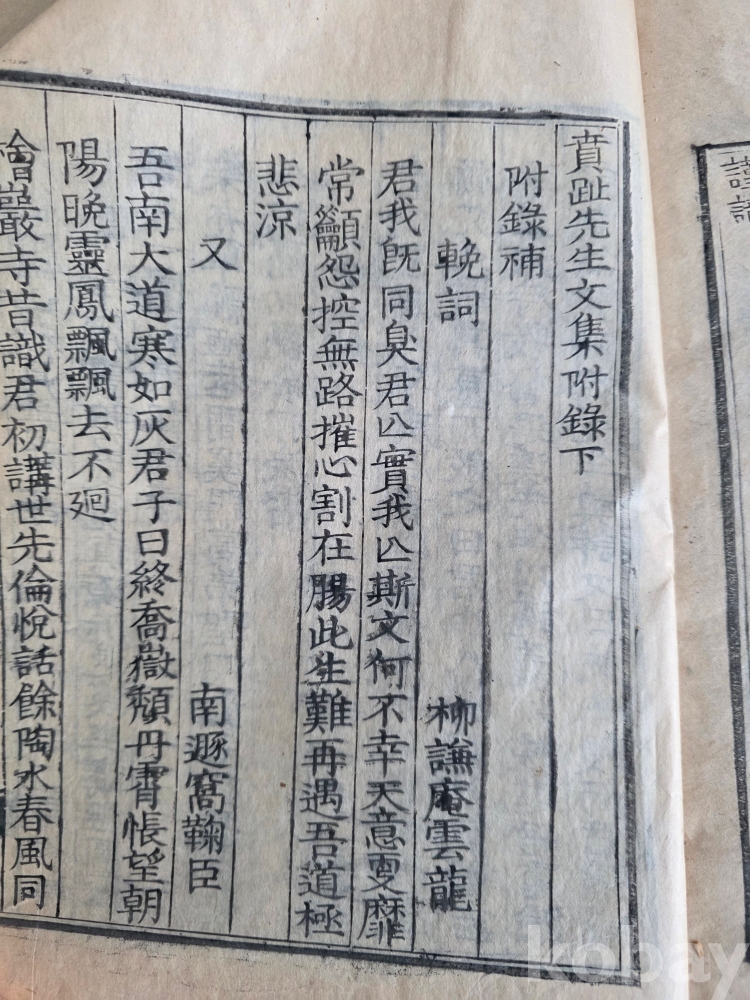 賁趾先生文集附錄下
附錄補
輓詞 柳謙庵雲龍
君我旣同臭君亾實我亾斯文何不幸天意叓靡
常籲怨控無路摧心割在膓此生難再遇吾道極
悲涼
又 南遯窩鞠臣
吾南大道寒如灰君子曰終喬嶽頹丹霄悵望朝
陽晩靈鳳飄飄去不廻
檜巖寺昔識君初講世先倫悅話餘陶水春風同
kobay